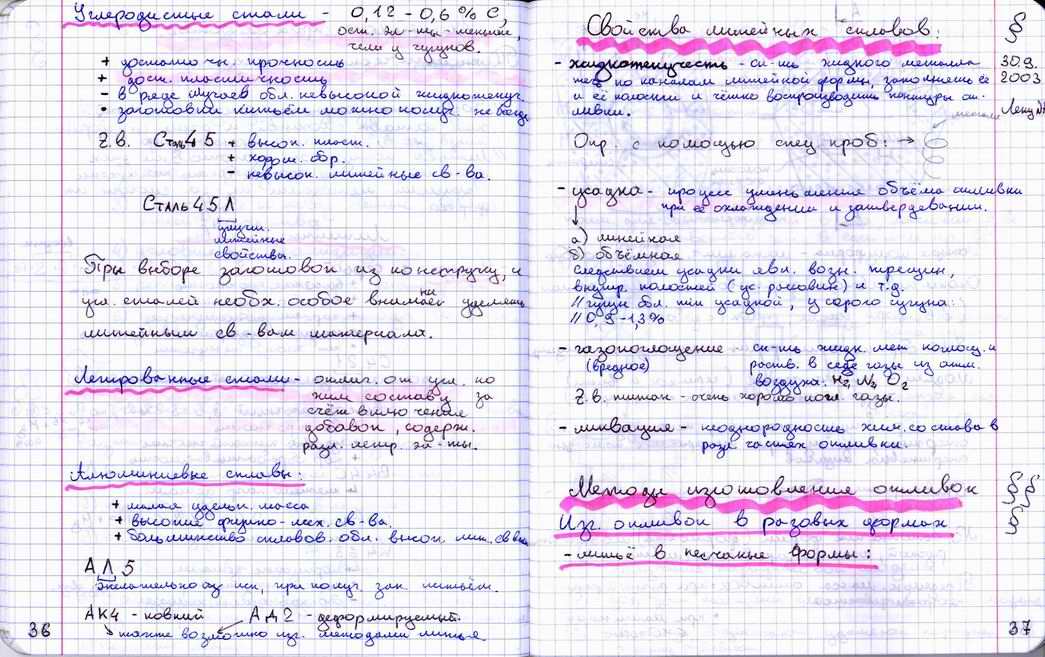 Углеродистые стали - 0,12 - 0,6 % С,
ост. эл-ты - меньше,
чем у чугунов.
+ достаточн. прочность
+ дост. пластичность
- в ряде случаев обл. невысокой жидкотекуч.
• заготовки литьём можно получ. не всегда
Z.B. Сталь 45 + высок. пласт.
+ хорош. обр.
- невысок. литейные св-ва.
Сталь 45Л
улучш.
литейные
свойства.
При выборе заготовок из конструкц. и
угл. сталей необх. особое внимание уделять
литейным св-вам материала.
Легированные стали - отлич. от угл. по
хим составу за
счёт включения
добавок, содерж.
разл. легир. эл-ты.
Алюминиевые сплавы:
+ малая удельн. масса
+ высокие физико-мех. св-ва.
+ большинство сплавов обл. высок. лит. св-ва
АЛ5
желательно исп. при получ. заг. литьём.
АК4 - ковкий АД2 - деформируемый.
также возможно изг. методами литья
36
Свойства литейных сплавов:
§
- жидкотекучесть - сп-ть жидкого металла
30.9.
течь по каналам литейной формы, заполнять её
2003
и её полости и чётко воспроизводить контуры от-
ливки.
Лекц
металл
Опр. с помощью спец проб: →
- усадка - процесс уменьшения объёма отливки
при её охлаждении и затвердевании.
а) линейная
б) объёмная
следствием усадки явл. возн. трещин,
внутр. полостей (ус. раковин) и т.д.
// чугун бел. лит усадкой, у серого чугуна:
// 0,9-1,3%
- газопоглощение сп-ть жидк. мет поглощ. и
(вредное) раств. в себе газы из атм.
воздуха. H₂, N₂, O₂
Z.B. титан - очень хорошо погл. газы.
- ликвация - неоднородность хим. состава в
разл частях отливки.
Методы изготовления отливок
§§
Изг. отливок в разовых формах
§
- литьё в песчаные формы:
37